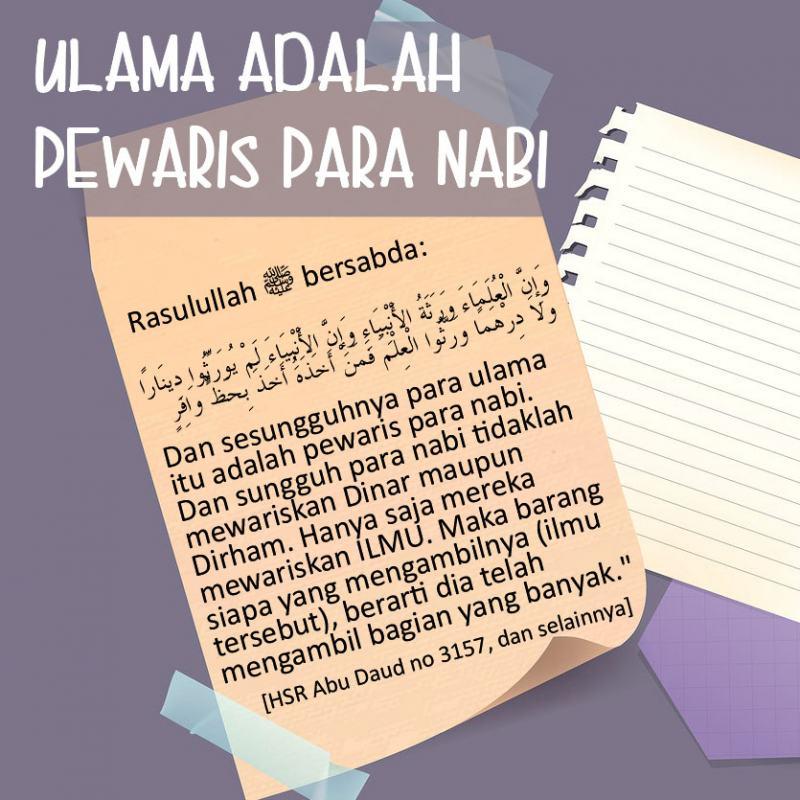 ULAMA ADALAH
PEWARIS PARA NABI
Rasulullah ﷺ bersabda:
وَإِنَّ الْعُلَمَاءَ وَرَثَةُ الأَنْبِيَاءِ وَإِنَّ الأَنْبِيَاءَ لَمْ يُوَرِّثُوا دِينَاراً
وَلاَ دِرْهَمًا وَرَّثُوا الْعِلْمَ فَمَنْ أَخَذَهُ أَخَذَ بِحَظٍّ وَافِرٍ
Dan sesungguhnya para ulama
itu adalah pewaris para nabi.
Dan sungguh para nabi tidaklah
mewariskan Dinar maupun
Dirham. Hanya saja mereka
mewariskan ILMU. Maka barang
siapa yang mengambilnya (ilmu
tersebut), berarti dia telah
mengambil bagian yang banyak."
[HSR Abu Daud no 3157, dan selainnya]